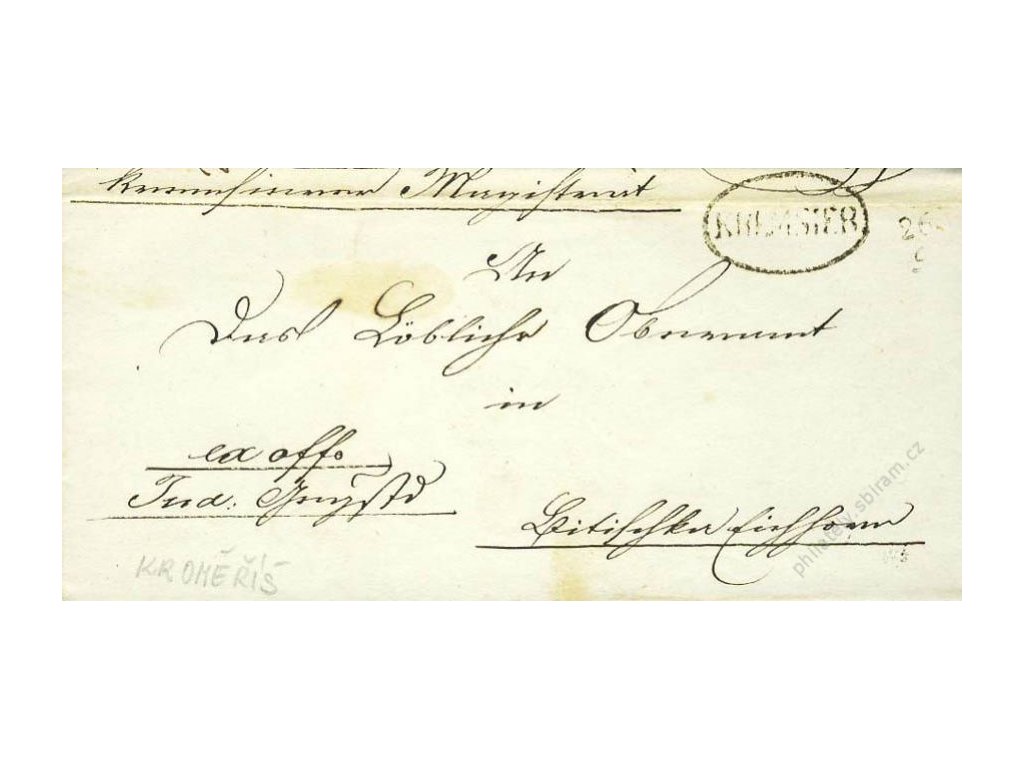 Kremsierer Magistrat
KREMSIER
An
Das Löbliche Oberamt
in
ex offo
Jud:
Bitischka Eichhorn
KROMĚŘÍŠ
philately.sbiram.cz